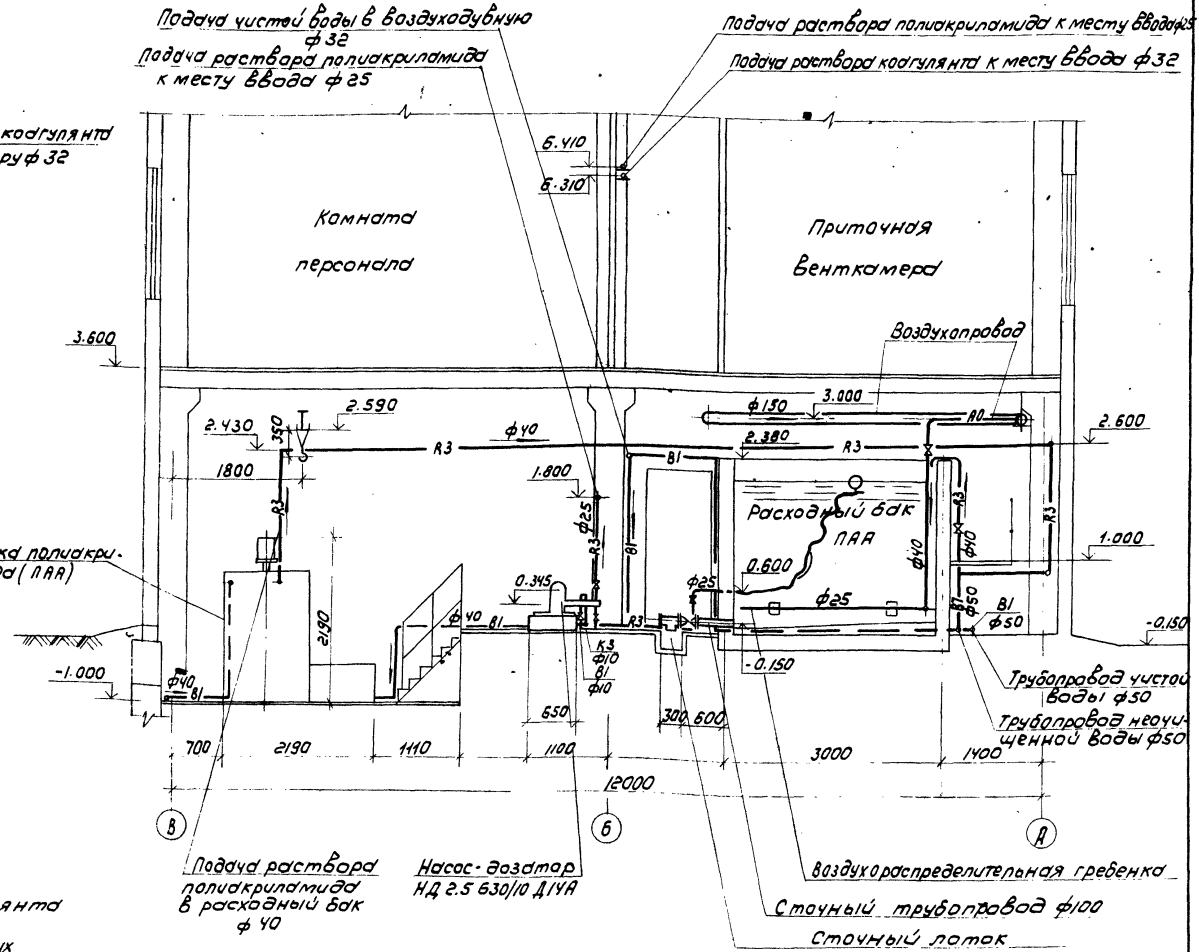 Подача чистой воды в воздуходувную
ф32
Подача раствора полиакриламида
к месту ввода ф25
Подача раствора полиакриламида к месту ввода ф25
Подача раствора коагулянта к месту ввода ф32
коагулянта
ру ф32
6.410
6.310
Комната
персонала
Приточная
венткамера
3.600
Воздухопровод
2.590
350
2.430
ф40
R3
1800
R3
ф150
3.000
А0
2.600
2.380
R3
В1
1.800
ф25
R3
В1
Расходный бак
ПАА
R3
ф40
ф40
R3
1.000
ка полиакри-
да (ПАА)
0.345
0.600
ф25
ф25
2190
ф40
В1
R3
В1
ф50
В1
ф50
-0.150
К3
ф10
В1
ф10
-0.150
-1.000
ф40
В1
Трубопровод чистой
воды ф50
Трубопровод неочи-
щенной воды ф50
650
300
600
700
2190
1110
1100
3000
1400
12000
В
Б
А
Подача раствора
полиакриламида
в расходный бак
ф 40
Насос-дозатор
НД 2.5 630/10 Д14А
Воздухораспределительная гребенка
Сточный трубопровод ф100
Сточный лоток
янта
ых